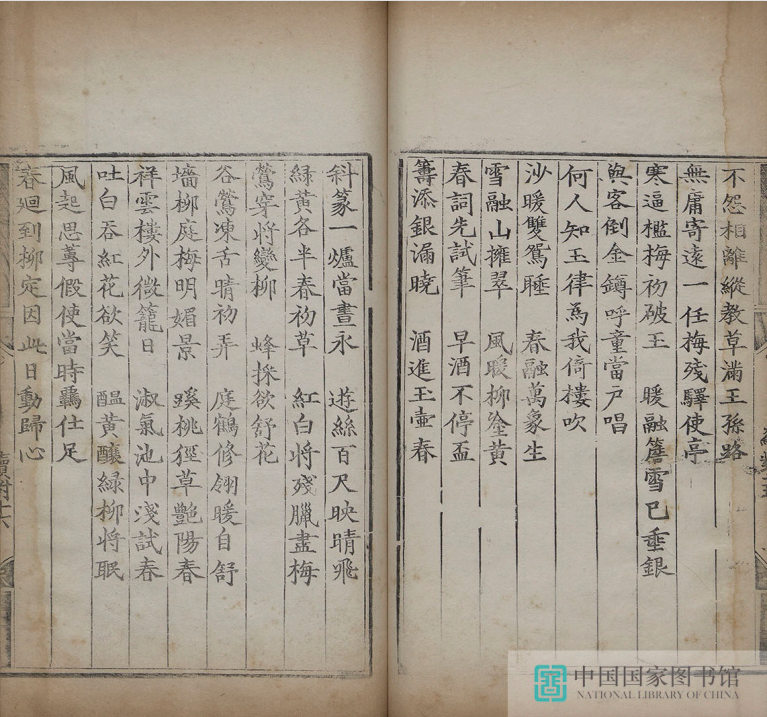 不怨相離縱教草滿王孫路
無庸寄遠一任梅殘驛使亭
寒逼檻梅初破玉　暖融簷雪已垂銀
與客倒金罇呼童當戶唱
何人知玉律為我倚樓吹
沙暖雙鴛睡　春融萬象生
雪融山擁翠　風暖柳筌黃
春詞先試筆　早酒不停盃
籌添銀漏曉　酒進玉壺春
斜篆一爐當晝永　遊絲百尺映晴飛
綠黃各半春初草　紅白將殘臘盡梅
鶯穿將變柳　蜂採欲舒花
谷鶯凍舌晴初弄　庭鶴修翎暖自舒
墻柳庭梅明媚景　蹊桃徑草艷陽春
祥雲樓外微籠日　淑氣池中淺試春
吐白吞紅花欲笑　醞黃釀綠柳將眠
風起思蓴假使當時羈仕足
春廻到柳定因此日動歸心
中国国家图书馆
NATIONAL LIBRARY OF CHINA